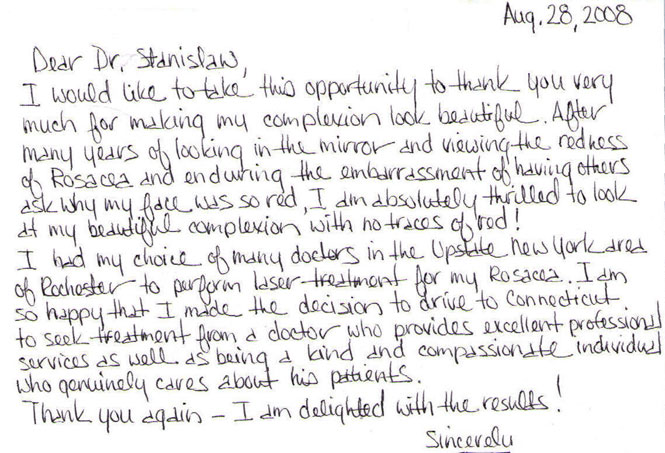 Aug. 28, 2008
Dear Dr. Stanislaw,
I would like to take this opportunity to thank you very
much for making my complexion look beautiful. After
many years of looking in the mirror and viewing the redness
of Rosacea and enduring the embarrassment of having others
ask why my face was so red, I am absolutely thrilled to look
at my beautiful complexion with no traces of red!
I had my choice of many doctors in the Upstate New York area
of Rochester to perform laser treatment for my Rosacea. I am
so happy that I made the decision to drive to Connecticut
to seek treatment from a doctor who provides excellent professional
services as well as being a kind and compassionate individual
who genuinely cares about his patients.
Thank you again – I am delighted with the results!
Sincerely